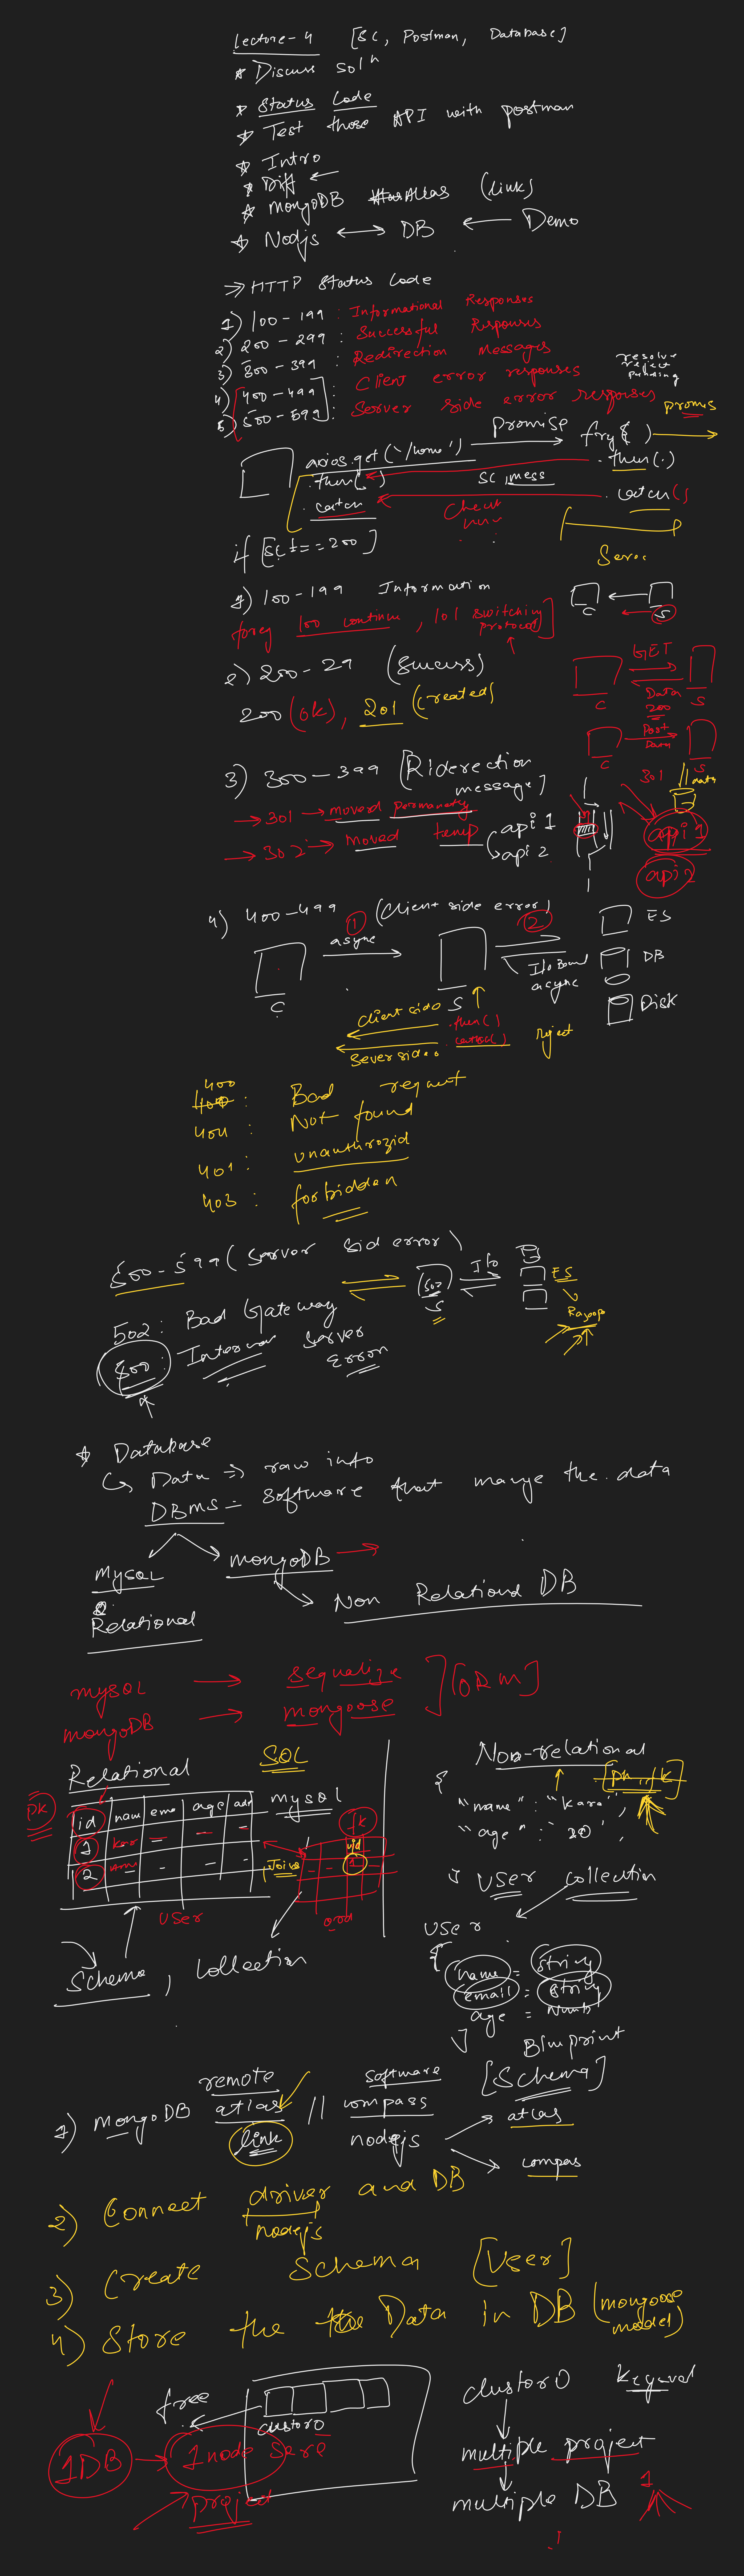 Lecture-4 [SC, Postman, Database]
* Discuss solⁿ
* Status Code
* Test those API with postman
* Intro
* Diff ←
* MongoDB Atlas (link)
* Nodjs ←→ DB ← Demo
⇒ HTTP Status Code
1) 100-199 : Informational Responses
2) 200-299 : Successful Responses
3) 300-399 : Redirection Messages
4) 400-499 : Client error responses
5) 500-599 : Server side error responses
resolve
reject
pending
axios.get('/home') Promise → promis
.then( ) SC, mess .then(.)
.catch .catch()
if [sc === 200]
1) 100-199 Information
100 continue, 101 switching protocol]
C S
2) 200-29 (Success)
200 (ok), 201 (created)
GET
Data
200
C S
Post
Data
C S
3) 300-399 [Riderection message]
→ 301 → moved permanately
→ 302 → Moved temp
api 1
api 2
301
data
api 1
api 2
4) 400-499 (Client side error)
① async ②
C S
I/o Bound
async
ES
DB
Disk
Client side .then( )
Sever side .catch( ) reject
400 : Bad request
404 : Not found
401 : unauthrozid
403 : forbidden
500-599 (Server sid error)
502 I/o ES
S
502 : Bad Gateway
500 : Internal Server Error
* Database
↳ Data ⇒ raw info
DBMS = Software that mange the data
Mysql mongoDB →
Relational Non Relationd DB
mySQL → sequalize
mongoDB → mongoose ] [ORM]
Relational SQL
PK
id nam ema age adr mysql
1
2
User
Joins
fk
uid
Schema, Collection
Non-relational
{
"name" : "Kara",
"age" : 20,
} User collection
User
{
name = String
email = String
age = Numb
}
Bluprint
[Schema]
1) MongoDB remote atlas // software compass
link nodejs
atlas
compas
2) Connect driver and DB
nodejs
3) Create Schema [User]
4) Store the Data in DB (mongoose model)
free
clustor0
1DB → 1 node
project
clustor0
multiple project
multiple DB
1